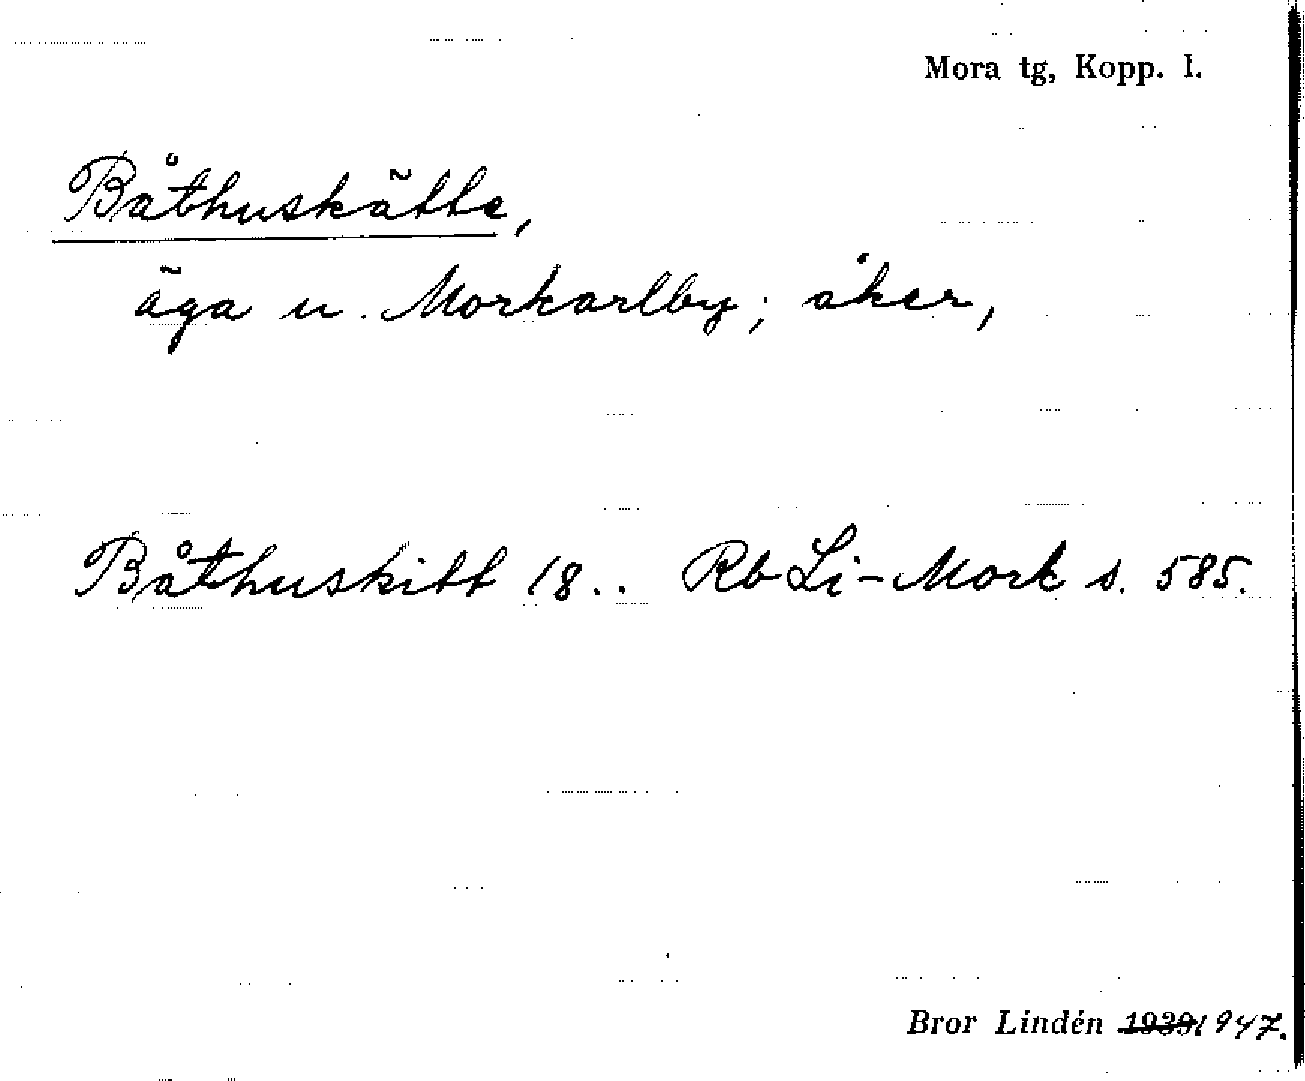 Mora tg, Kopp. l.
Båthuskätte,
äga u. Morkarlby; åker,
Båthuskitt 18.. Rb Li-Mork s. 585.
Bror Lindén 1939 1947.